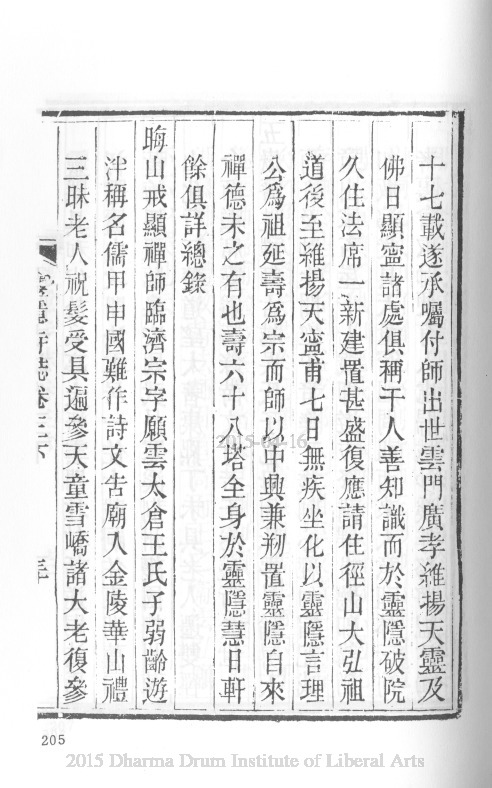 十七載遂承囑付師出世雲門廣孝維揚天靈及
佛日顯寍諸處俱稱干人善知識而於靈隱破院
久住法席一新建置甚盛復應請住徑山大弘祖
道後至維揚天寍甫七日無疾坐化以靈隱言理
公爲祖延壽爲宗而師以中興兼剏置靈隱自來
禪德未之有也壽六十八塔全身於靈隱慧日軒
餘俱詳總錄
晦山戒顯禪師臨濟宗字願雲太倉王氏子弱齡遊
泮稱名儒甲申國難作詩文告廟入金陵華山禮
三昧老人祝髮受具遍參天童雪嶠諸大老復參
寺誌卷三下
205
2015-04-16
2015 Dharma Drum Institute of Liberal Arts